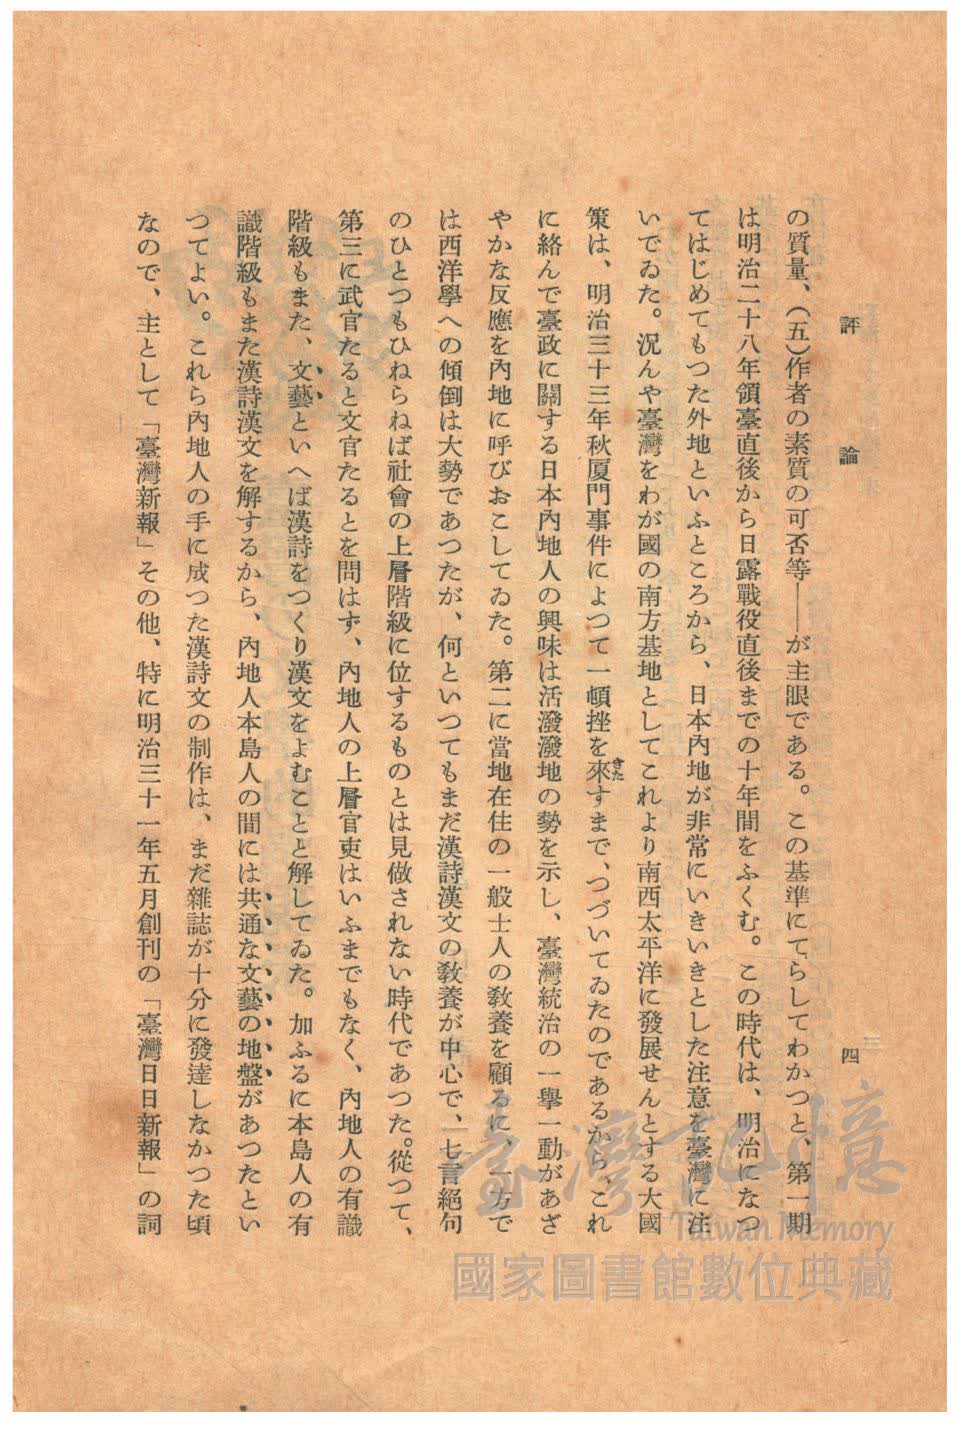 評論 四
の質量、（五）作者の素質の可否等――が主眼である。この基準にてらしてわかつと、第一期
は明治二十八年領臺直後から日露戰役直後までの十年間をふくむ。この時代は、明治になつ
てはじめてもつた外地といふところから、日本內地が非常にいきいきとした注意を臺灣に注
いでゐた。況んや臺灣をわが國の南方基地としてこれより南西太平洋に發展せんとする大國
策は、明治三十三年秋厦門事件によつて一頓挫を來すまで、つづいてゐたのであるから、これ
きた
に絡んで臺政に關する日本內地人の興味は活潑潑地の勢を示し、臺灣統治の一擧一動があざ
やかな反應を內地に呼びおこしてゐた。第二に當地在住の一般士人の敎養を顧るに、一方で
は西洋學への傾倒は大勢であつたが、何といつてもまだ漢詩漢文の敎養が中心で、七言絕句
のひとつもひねらねば社會の上層階級に位するものとは見做されない時代であつた。從つて、
第三に武官たると文官たるとを問はず、內地人の上層官吏はいふまでもなく、內地人の有識
階級もまた、文藝といへば漢詩をつくり漢文をよむことと解してゐた。加ふるに本島人の有
識階級もまた漢詩漢文を解するから、內地人本島人の間には共通な文藝の地盤があつたとい
つてよい。これら內地人の手に成つた漢詩文の制作は、まだ雜誌が十分に發達しなかつた頃
なので、主として「臺灣新報」その他、特に明治三十一年五月創刊の「臺灣日日新報」の詞
臺灣記憶
Taiwan Memory
國家圖書館數位典藏